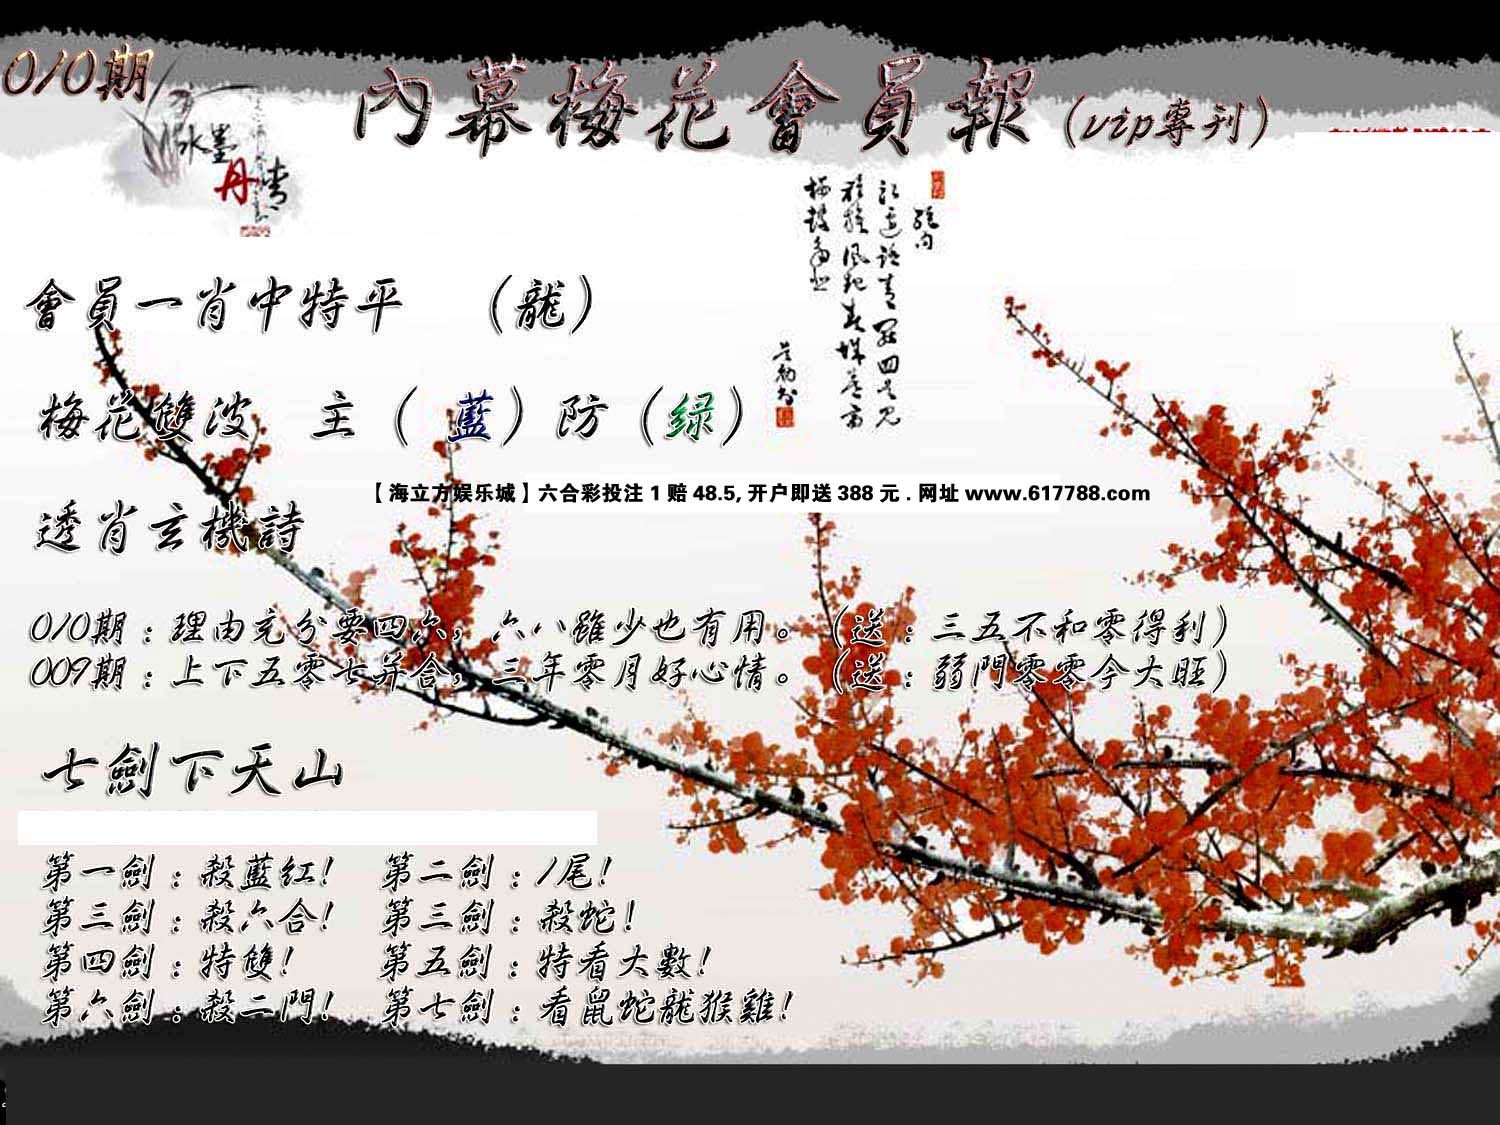 010期
內幕梅花會員報(vip專刊)
水墨
丹情
會員一肖中特平 (龍)
梅花雙波 主(藍)防(绿)
【海立方娱乐城】六合彩投注1赔48.5,开户即送388元.网址www.617788.com
透肖玄機詩
010期:理由充分要四六,六八雖少也有用。(送:三五不和零得利)
009期:上下五零七并合,三年零月好心情。(送:弱門零零今大旺)
七劍下天山
第一劍:殺藍红! 第二劍:1尾!
第三劍:殺六合! 第三劍:殺蛇!
第四劍:特雙! 第五劍:特看大數!
第六劍:殺二門! 第七劍:看鼠蛇龍猴雞!